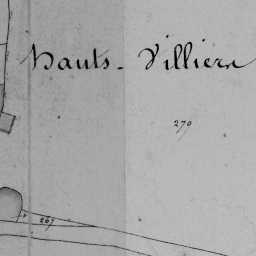 hauts-Villiers
270
267